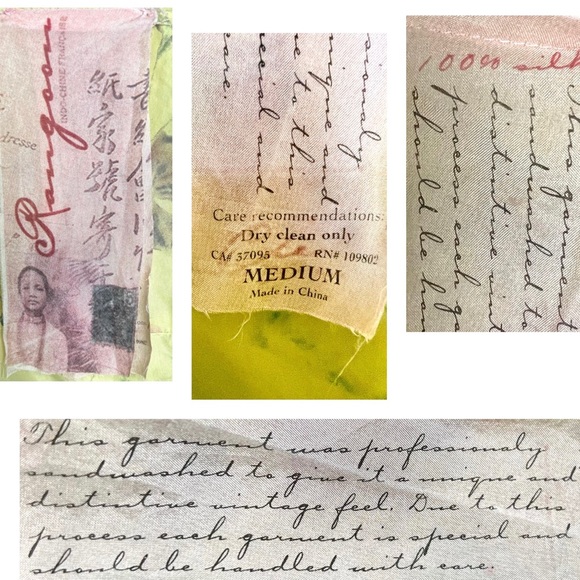 Rangoon
INDO-CHINE FRANÇAISE
dresse
紙家號寄
sionaly
nique and
e to this
ecial and
are.
Care recommendations:
Dry clean only
CA# 57095 RN# 109802
MEDIUM
Made in China
100% silk
This garment
sandwashed to
distintive vint
process each ga
should be han
This garment was professionaly
sandwashed to give it a unique and
distintive vintage feel. Due to this
process each garment is special and
should be handled with care.